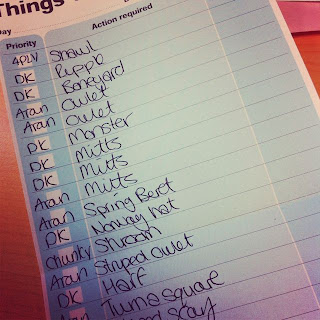 Things
Day
Priority Action required
4PLY Shawl
DK Ripple
DK Boneyard
Aran Owlet
Aran Owlet
DK Monster
DK Mitts
DK Mitts
Aran Mitts
Aran Spring Beret
DK Norway hat
Chunky Shroom
Aran Striped owlet
DK Half
Aran Turn a Square